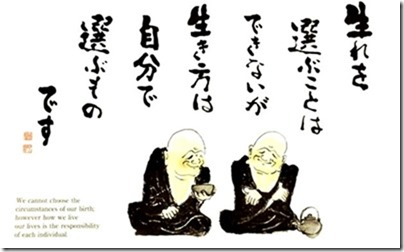 生れを
選ぶことは
できないが
生き方は
自分で
選ぶもの
です
We cannot choose the
circumstances of our birth;
however how we live
our lives is the responsibility
of each individual.